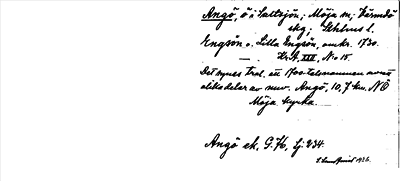 Angö, ö i Saltsjön; Möja sn; Värmdö
skg; Sthlms l.
Engsön o. Lilla Engsön, omkr. 1730.
Kr. A. III, No 15.
Det synes trol. att 1700-talsnamnen avse
olika delar av nuv. Angö, 10,7 km. NÖ
Möja kyrka.
Angö ek. G. 76, Lj 234.
1926.